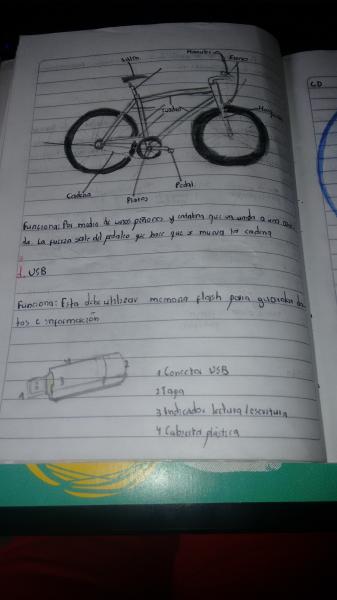 Manubrio
Sillín
Freno
Cuadro
Horquilla
Cadena
Platos
Pedal
Funciona: Por medio de unos piñones y cadena que va unida a una
de. La fuerza sale del pedaleo que hace que se mueva la cadena
d. USB
Funciona: Esta debe utilizar memoria flash para guardar da
tos e información
1 Conector USB
2 Tapa
3 Indicador lectura/escritura
4 Cubierta plástica
CD